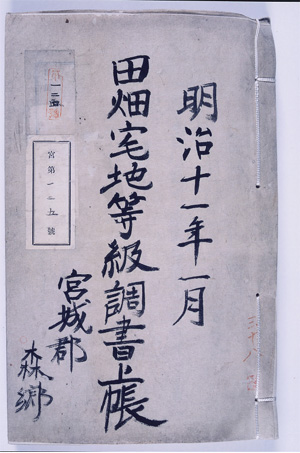 明治十一年一月
田畑宅地等級調書上帳
宮城郡
森郷
宮第一二五號